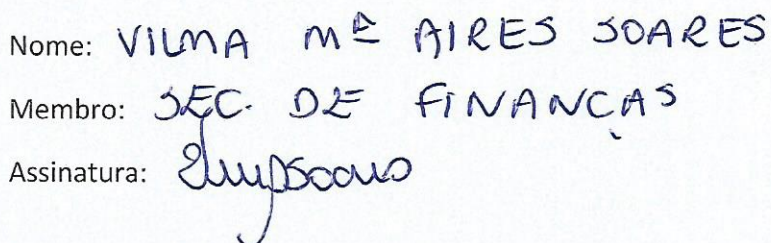 Nome: VILMA Mª AIRES SOARES
Membro: SEC. DE FINANÇAS
Assinatura: